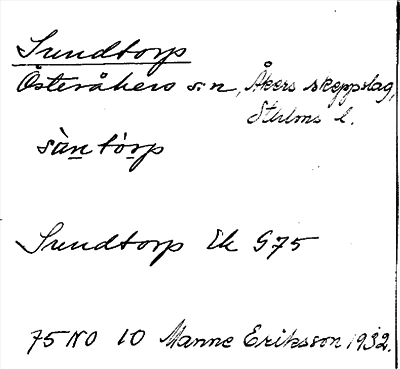 Sundtorp
Österåkers s:n, Åkers skeppslag,
Sthlms l.
sàn tórp
Sundtorp Ek G75
75 NO 10 Manne Eriksson 1932.